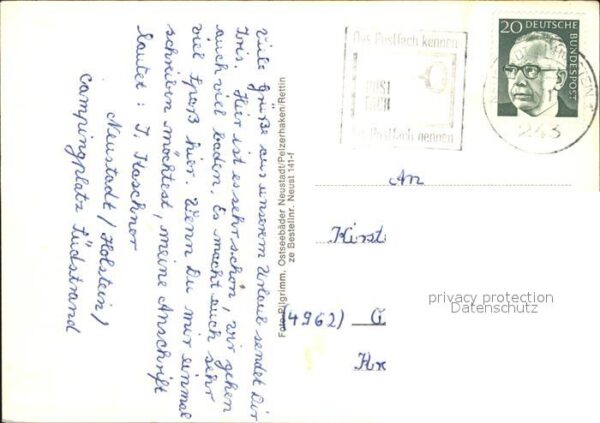 Viele Grüße aus unserem Urlaub sendet Dir
Iris. Hier ist es sehr schön, wir gehen
auch viel baden. Es macht auch sehr
viel Spaß hier. Wenn Du mir einmal
schreiben möchtest, meine Anschrift
lautet: I. Kaschner
Neustadt / Holstein /
Campingplatz Südstrand
Foto-Pilgrimm, Ostseebäder Neustadt/Pelzerhaken/Rettin
ze Bestellnr. Neust 141-f
Das Postfach kennen
POST
FACH
Das Postfach nennen
20 DEUTSCHE
BUNDESPOST
243
An
Kirst
(4962)
privacy protection
Datenschutz